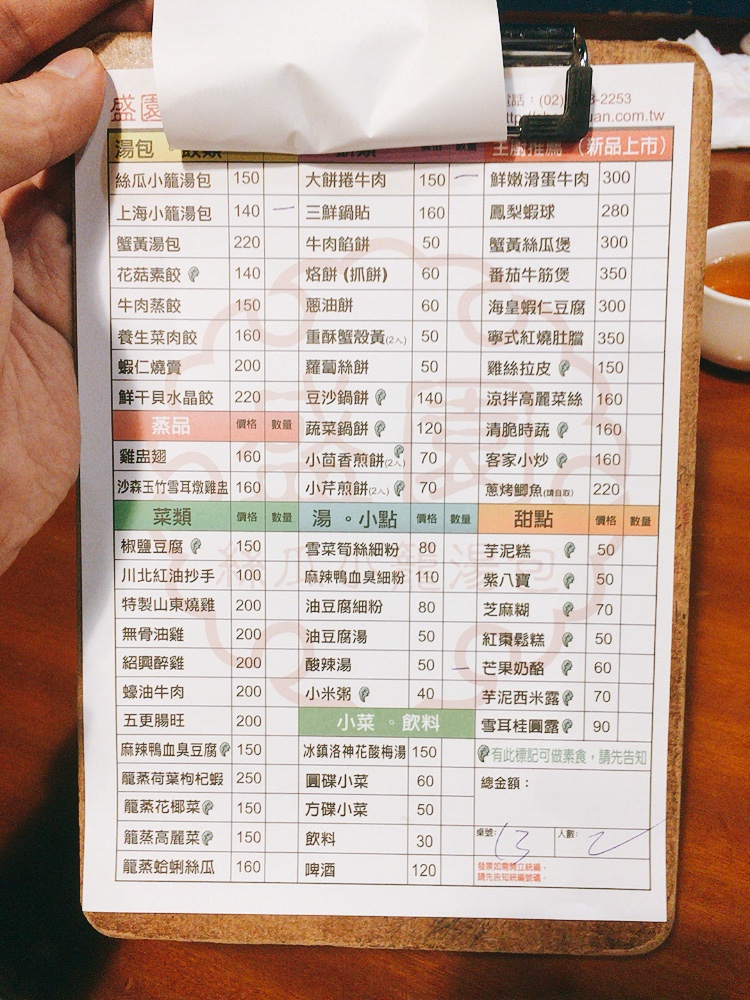 盛園
電話：(02)
3-2253
uan.com.tw
湯包
價格 數量
主廚推薦（新品上市）
絲瓜小籠湯包 150 大餅捲牛肉 150 一 鮮嫩滑蛋牛肉 300
上海小籠湯包 140 一 三鮮鍋貼 160 鳳梨蝦球 280
蟹黃湯包 220 牛肉餡餅 50 蟹黃絲瓜煲 300
花菇素餃 140 烙餅 (抓餅) 60 番茄牛筋煲 350
牛肉蒸餃 150 蔥油餅 60 海皇蝦仁豆腐 300
養生菜肉餃 160 重酥蟹殼黃(2入) 50 寧式紅燒肚膛 350
蝦仁燒賣 200 蘿蔔絲餅 50 雞絲拉皮 150
鮮干貝水晶餃 220 豆沙鍋餅 140 涼拌高麗菜絲 160
蒸品 價格 數量 蔬菜鍋餅 120 清脆時蔬 160
雞盅翅 160 小茴香煎餅(2入) 70 客家小炒 160
沙森玉竹雪耳燉雞盅 160 小芹煎餅(2入) 70 蔥烤鯽魚(請自取) 220
菜類 價格 數量 湯 。小點 價格 數量 甜點 價格 數量
椒鹽豆腐 150 雪菜筍絲細粉 80 芋泥糕 50
川北紅油抄手 100 麻辣鴨血臭細粉 110 紫八寶 50
特製山東燒雞 200 油豆腐細粉 80 芝麻糊 70
無骨油雞 200 油豆腐湯 50 紅棗鬆糕 50
紹興醉雞 200 酸辣湯 50 一 芒果奶酪 60
蠔油牛肉 200 小米粥 40 芋泥西米露 70
五更腸旺 200 小菜 。飲料 雪耳桂圓露 90
麻辣鴨血臭豆腐 150 冰鎮洛神花酸梅湯 150 有此標記可做素食，請先告知
籠蒸荷葉枸杞蝦 250 圓碟小菜 60 總金額：
籠蒸花椰菜 150 方碟小菜 50
籠蒸高麗菜 150 飲料 30 桌號: 13 人數: 2
籠蒸蛤蜊絲瓜 160 啤酒 120
發票如需開立統編，
請先告知統編號碼。
絲瓜小籠湯包